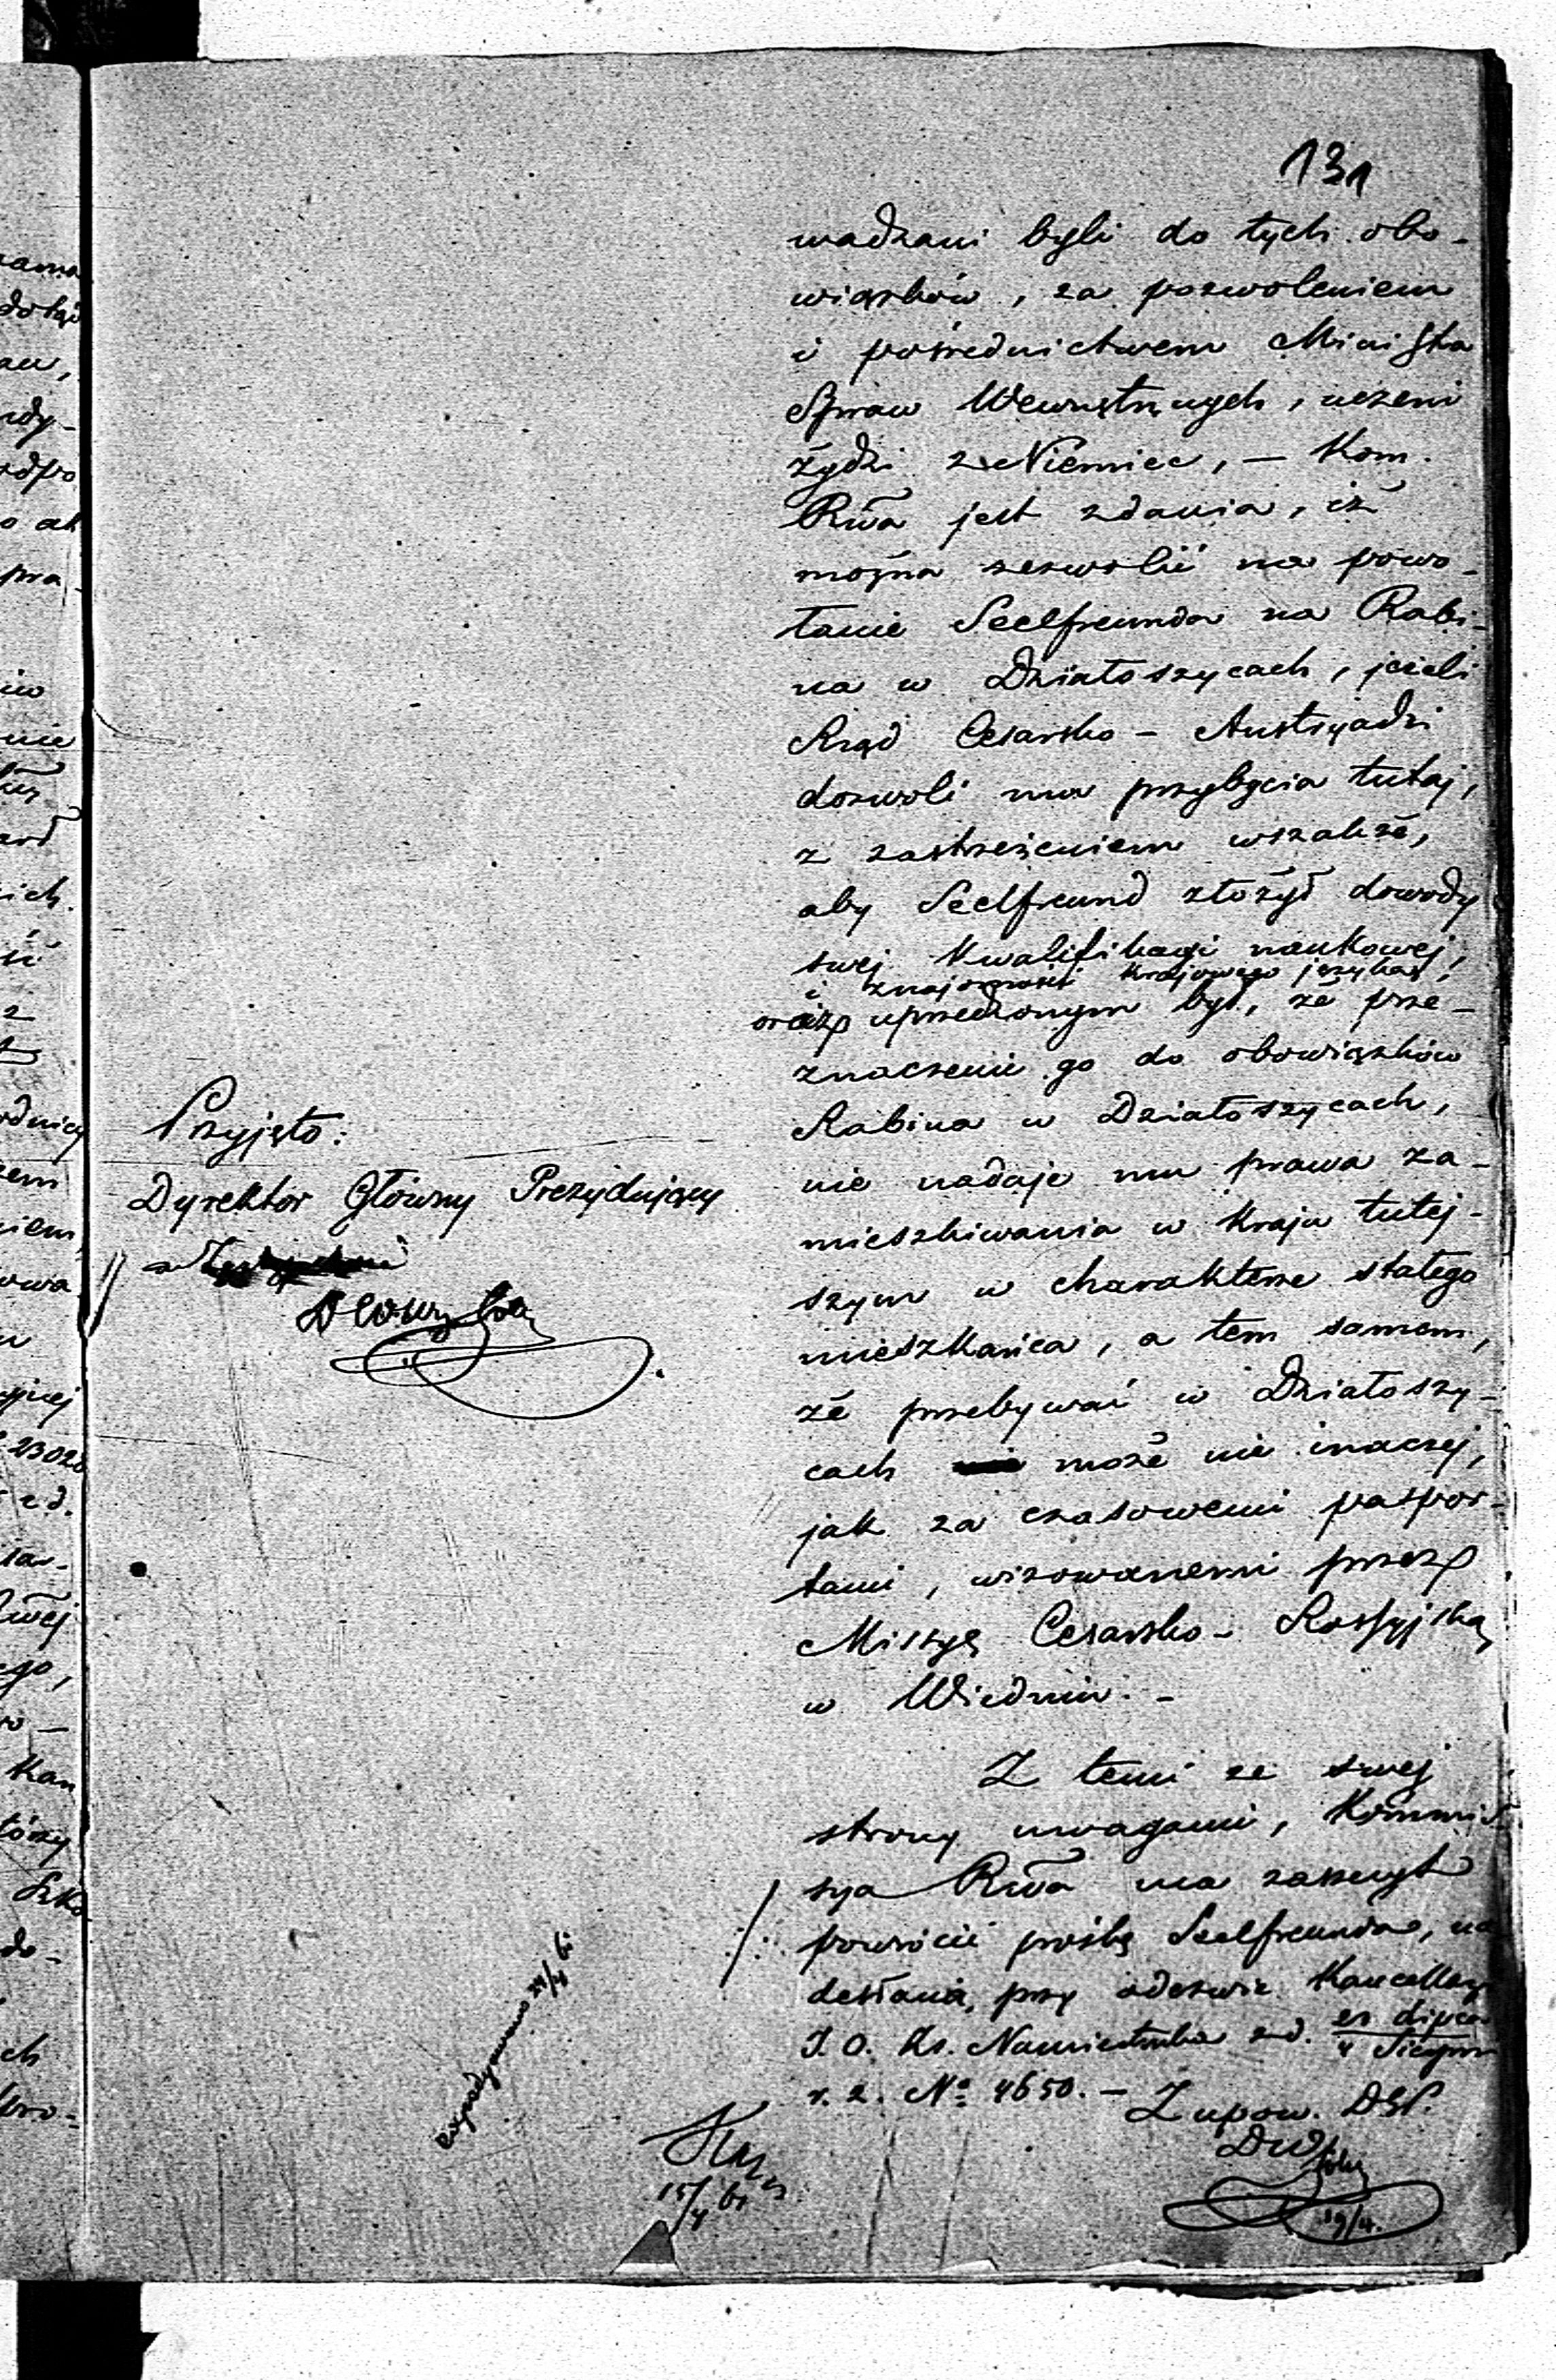 131
wadzani byli do tych obo-
wiązków, za pozwoleniem
i pośrednictwem Ministra
Spraw Wewnętrznych, uczeni
żydzi z Niemiec, — Kom.
Rwa jest zdania, iż
można zezwolić na powo-
łanie Seelfreunda na Rabi-
na w Działoszycach, jeżeli
Rząd Cesarsko - Austryacki
dozwoli mu przybycia tutaj,
z zastrzeżeniem wszakże,
aby Seelfreund złożył dowody
swej kwalifikacyi naukowej,
i znajomości krajowego języka,
oraz uprzedzonym był, że prze-
znaczenie go do obowiązków
Rabina w Działoszycach,
nie nadaje mu prawa za-
mieszkiwania w kraju tutej-
szym w charakterze stałego
mieszkańca, a tem samem,
że przebywać w Działoszy-
cach może nie inaczej,
jak za czasowemi paszpor-
tami, wizowanemi przez
Missyę Cesarsko - Rossyjską
w Wiedniu. -
Z temi ze swej
strony uwagami, Kommis
sya Rwa ma zaszczyt
powrócić prośbę Seelfreunda, na
desłaną, przy odezwie Kancellaryi
J. O. Ks. Namiestnika z d.
r. z. No 4650. —
Z upow. DGP.
19/4.
Przyjęto:
Dyrektor Główny Prezydujący
expedyowano
15/4 61